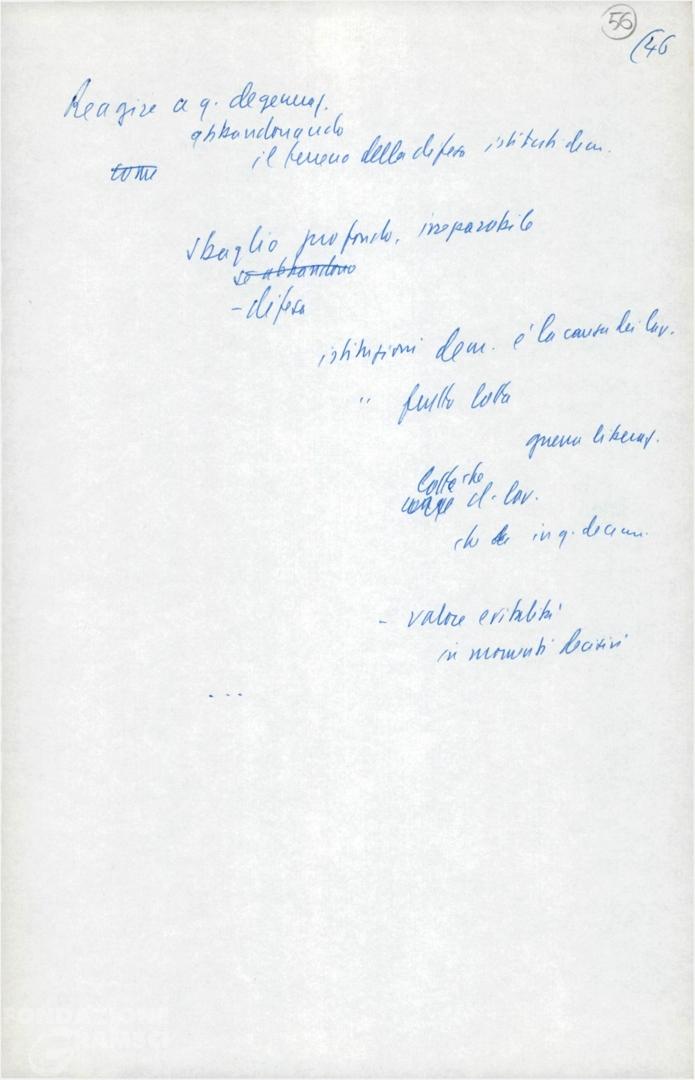 56
(46
Reagire a q. degeneraz.
abbandonando
il terreno della difesa istituti dem.
come
sbaglio profondo, irreparabile
se abbandono
- difesa
istituzioni dem. è la causa dei lav.
" frutto lotta
guerra liberaz.
lotte che
d. lav.
che in q. decenn.
- valore e vitalità
in momenti decisivi
...
FONDAZIONE
GRAMSCI